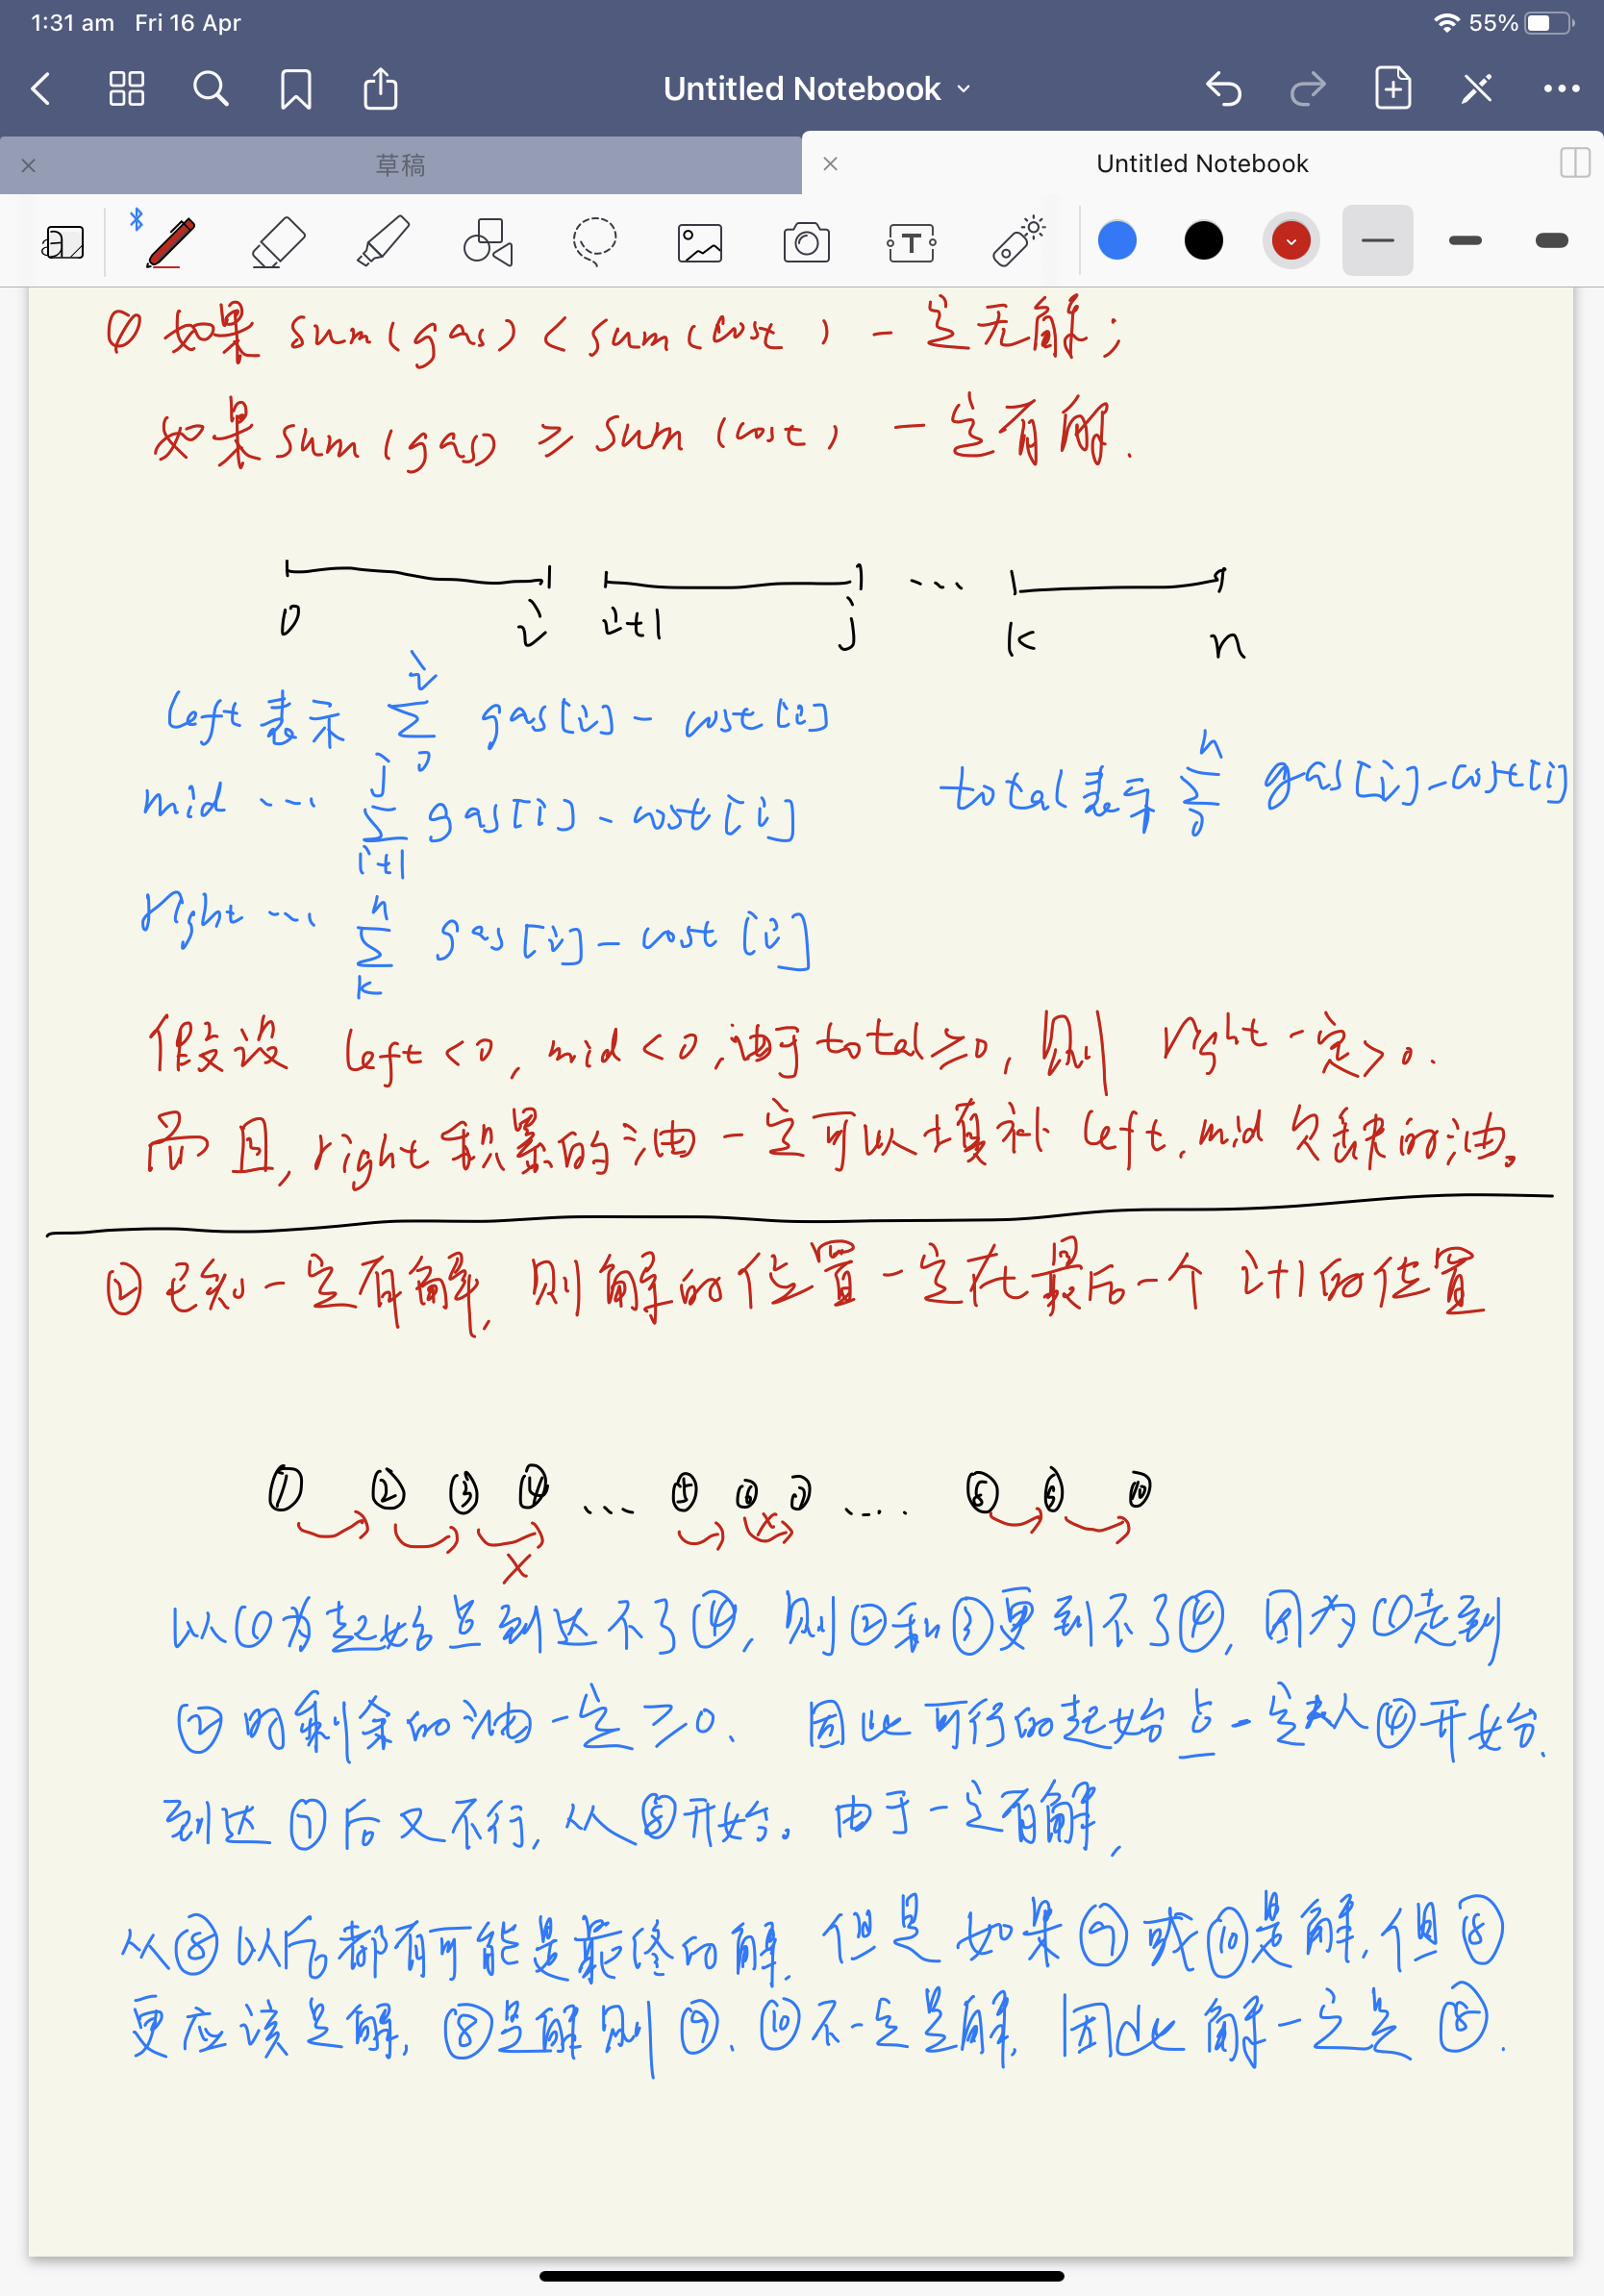 1:31 am Fri 16 Apr
55%
Untitled Notebook
草稿
Untitled Notebook
① 如果 sum(gas) < sum(cost) 一定无解;
如果 sum(gas) ≥ sum(cost) 一定有解.
0 i i+1 j ... k n
left 表示 ∑ i 0 gas[i] - cost[i]
mid ... ∑ j i+1 gas[i] - cost[i]
total表示 ∑ n 0 gas[i]-cost[i]
right ... ∑ n k gas[i] - cost[i]
假设 left<0, mid<0, 由于total≥0, 则 right一定>0.
而且, right积累的油一定可以填补 left, mid 欠缺的油。
② 已知一定有解, 则解的位置一定在最后一个 i+1的位置
① ② ③ ④ ... ⑤ ⑥ ⑦ ....
x x
以①为起始点到达不了④, 则②和③更到不了④, 因为①走到
②时剩余的油一定≥0. 因此可行的起始点一定从④开始.
到达⑦后又不行, 从⑧开始。由于一定有解,
从⑧以后都有可能是最终的解. 但是如果⑨或⑩是解, 但⑧
更应该是解, ⑧是解则⑨、⑩不一定是解, 因此解一定是⑧.